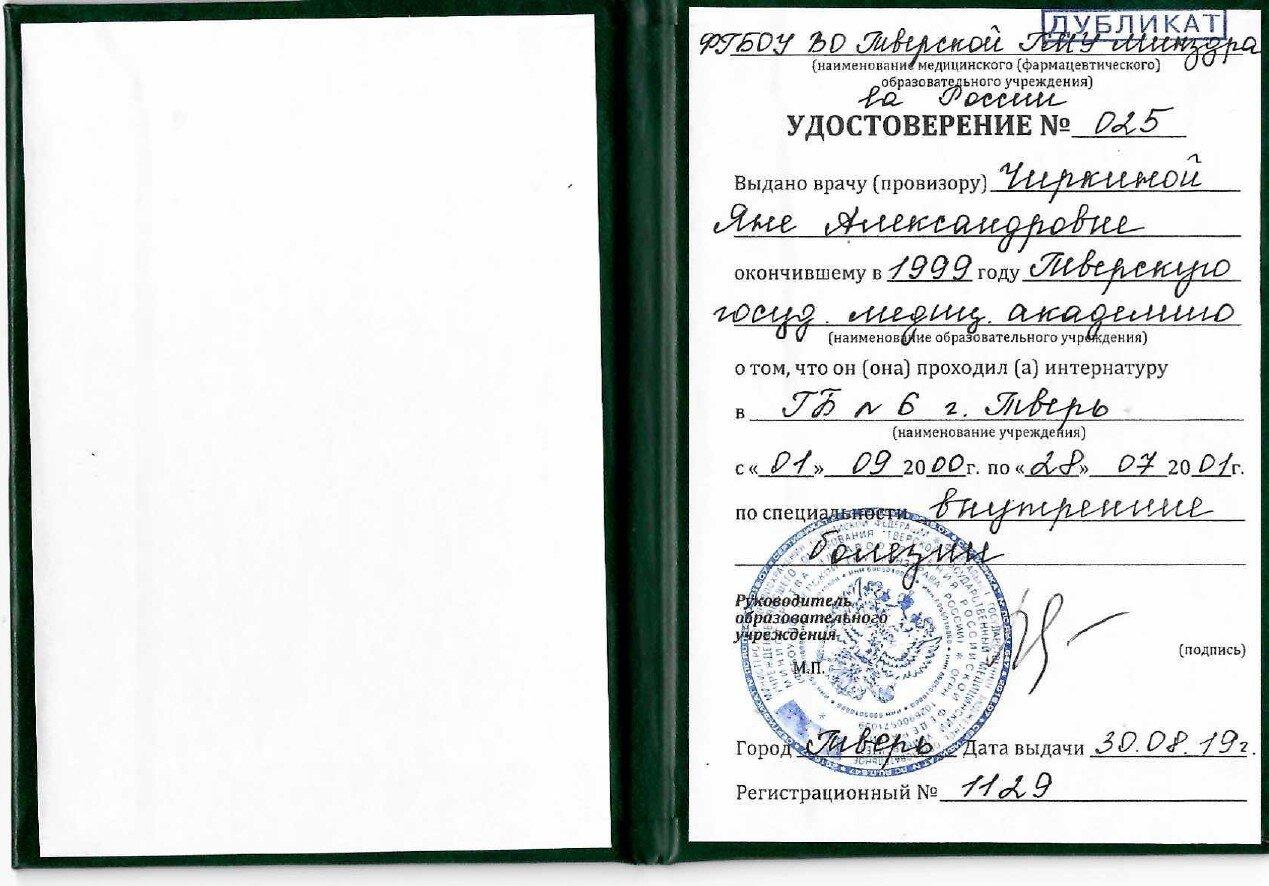 ДУБЛИКАТ
ФГБОУ ВО Тверской ГМУ Минздра
(наименование медицинского (фармацевтического)
образовательного учреждения)
ва России
УДОСТОВЕРЕНИЕ № 025
Выдано врачу (провизору) Чиркиной
Яне Александровне
окончившему в 1999 году Тверскую
госуд. медиц. академию
(наименование образовательного учреждения)
о том, что он (она) проходил (а) интернатуру
в ГБ № 6 г. Тверь
(наименование учреждения)
с « 01 » 09 2000г. по «28» 07 2001г.
по специальности внутренние
болезни
Руководитель
образовательного
учреждения
М.П.
(подпись)
Город Тверь Дата выдачи 30.08.19г.
Регистрационный № 1129